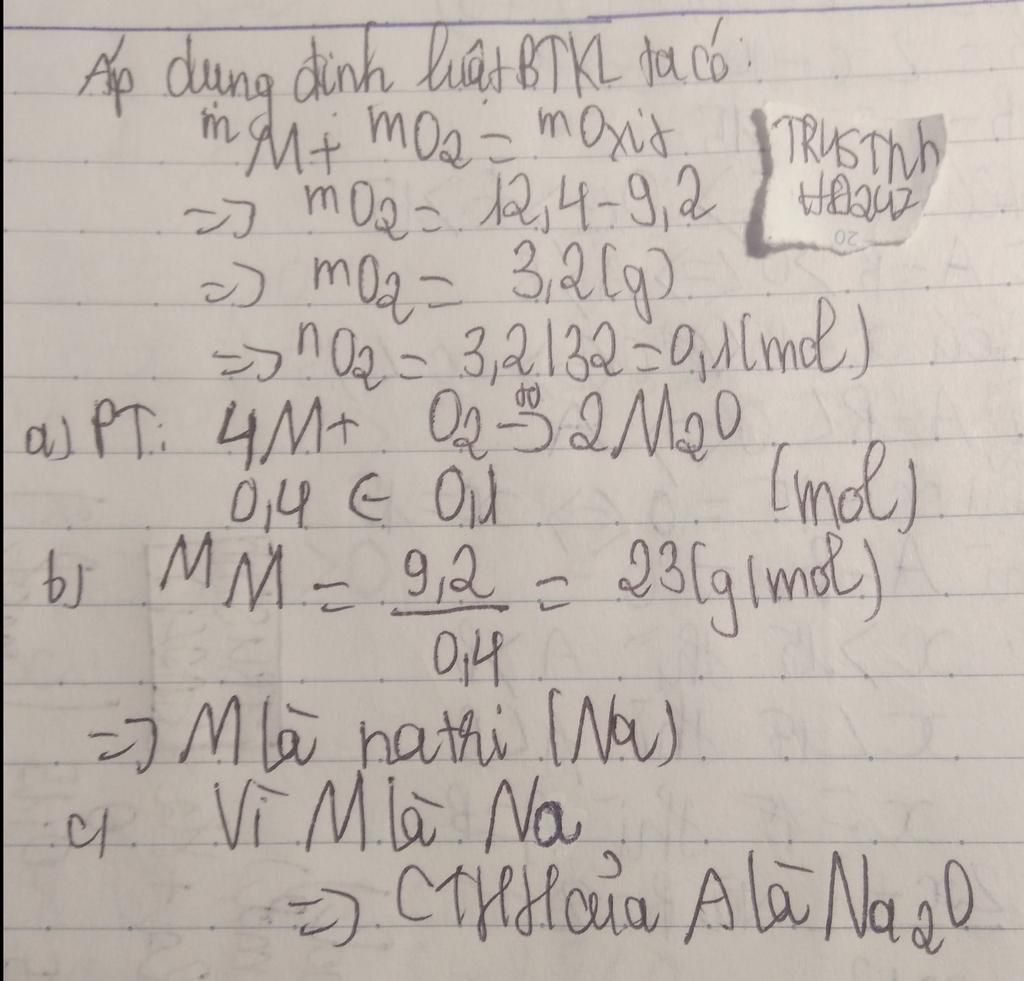 Áp dụng định luật BTKL ta có:
mM + mO2 = mOxit
=> mO2 = 12,4-9,2
=> mO2 = 3,2(g)
=> nO2 = 3,2/32=0,1(mol)
TRUSThh
20
a) PT: 4M + O2 -t°-> 2M2O
0,4 ← 0,1 (mol)
b) MM = 9,2/0,4 = 23(g/mol)
=> M là nathi (Na)
c) Vì M là Na
=> CTHH của A là Na2O